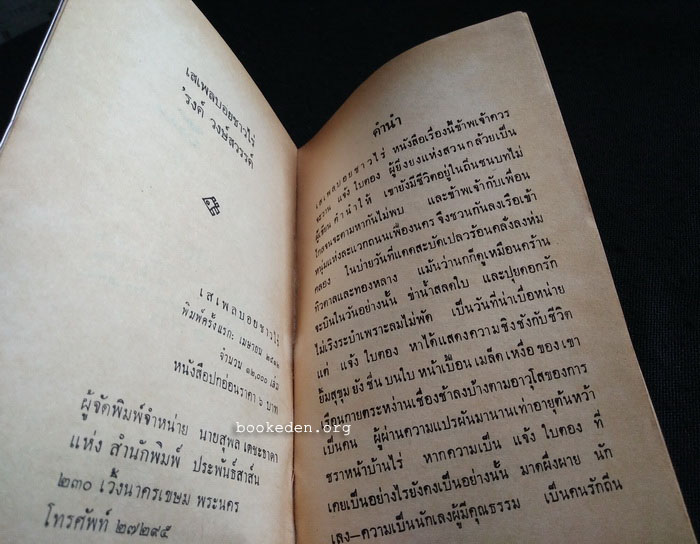 เสเพลบอยชาวไร่
'รงค์ วงษ์สวรรค์
เสเพลบอยชาวไร่
พิมพ์ครั้งแรก: เมษายน ๒๕๑๒
จำนวน ๑๒,๐๐๐ เล่ม
หนังสือปกอ่อนราคา ๖ บาท
ผู้จัดพิมพ์จำหน่าย นายสุพล เตชะธาดา
แห่ง สำนักพิมพ์ ประพันธ์สาส์น
๒๓๐ เวิ้งนาครเขษม พระนคร
โทรศัพท์ ๒๗๒๙๕
คำนำ
เสเพลบอยชาวไร่ หนังสือเรื่องนี้ข้าพเจ้าควร
จะวาน แจ้ง ใบตอง ผู้ยิ่งยงแห่งสวนกล้วยเป็น
ผู้เขียนคำนำให้ เขายังมีชีวิตอยู่ในถิ่นชนบทไม่
ไกลจนจะตามหากันไม่พบ และข้าพเจ้ากับเพื่อน
หนุ่มแห่งละแวกถนนเฟื่องนคร จึงชวนกันลงเรือเข้า
คลอง ในบ่ายวันที่แดดสะบัดเปลวร้อนคลั่งลงห่ม
ทิวตาลและทองหลาง แม้นว่านกก็ดูเหมือนคร้าน
จะบินในวันอย่างนั้น ข่าน้ำสลดใบ และปุยดอกรัก
ไม่เริงระบำเพราะลมไม่พัด เป็นวันที่น่าเบื่อหน่าย
แต่ แจ้ง ใบตอง หาได้แสดงความชิงชังกับชีวิต
ยิ้มสุขุมยังชื่นบนใบหน้าเปื้อนเมล็ดเหงื่อของเขา
เรือนกายตระหง่านเชื่องช้าลงบ้างตามอาวุโสของการ
เป็นคน ผู้ผ่านความแปรผันมานานเท่าอายุต้นหว้า
ชราหน้าบ้านไร่ หากความเป็น แจ้ง ใบตอง ที่
เคยเป็นอย่างไรยังคงเป็นอย่างนั้น มาดผึ่งผาย นัก
เลง—ความเป็นนักเลงผู้มีคุณธรรม เป็นคนรักถิ่น
bookeden.org